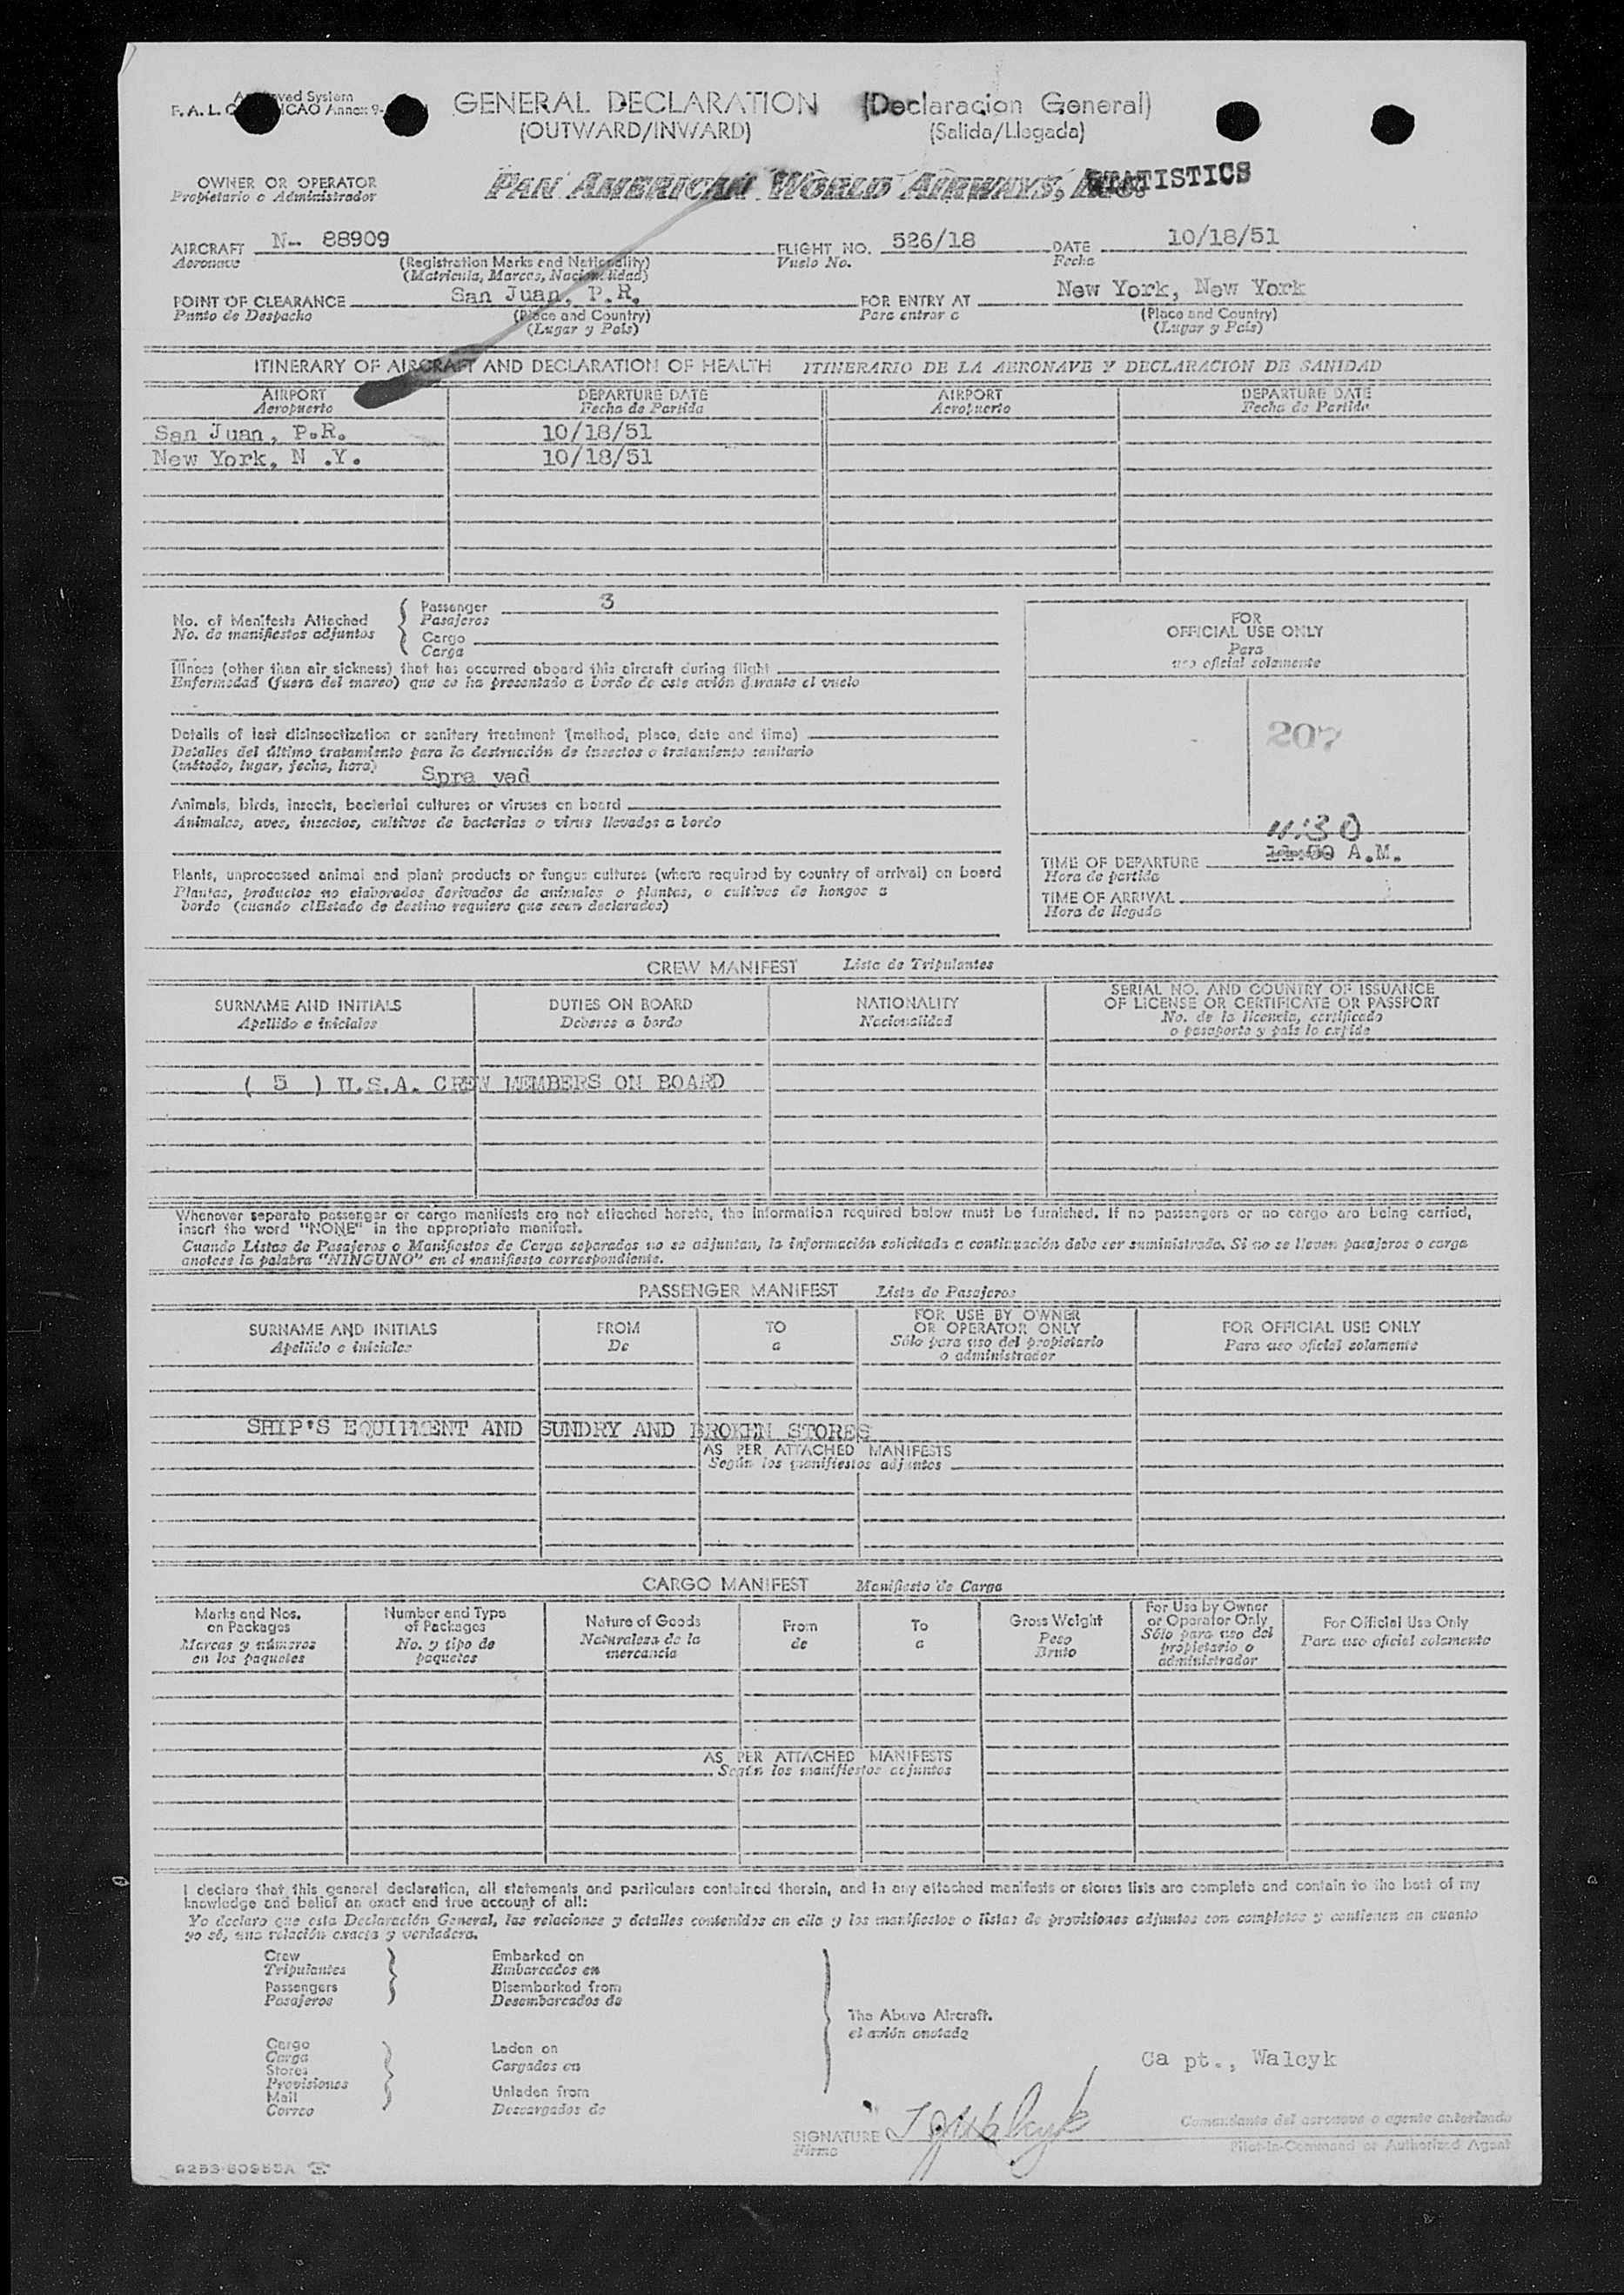 GENERAL DECLARATION (Declaracion General)
(OUTWARD/INWARD) (Salida/Llegada)
OWNER OR OPERATOR PAN AMERICAN WORLD AIRWAYS, STATISTICS
Propietario o Administrador
AIRCRAFT N- 88909 FLIGHT NO. 526/18 DATE 10/18/51
Aeronave (Registration Marks and Nationality) Vuelo No. Fecha
(Matricula, Marcas, Nacionalidad)
POINT OF CLEARANCE San Juan, P.R. FOR ENTRY AT New York, New York
Punto de Despacho (Place and Country) Para entrar a (Place and Country)
(Lugar y País) (Lugar y País)
ITINERARY OF AIRCRAFT AND DECLARATION OF HEALTH ITINERARIO DE LA AERONAVE Y DECLARACION DE SANIDAD
AIRPORT DEPARTURE DATE AIRPORT DEPARTURE DATE
Aeropuerto Fecha de Partida Aeropuerto Fecha de Partida
San Juan, P.R. 10/18/51
New York, N .Y. 10/18/51
No. of Manifests Attached
No. de manifiestos adjuntos
Passenger 3
Pasajeros
Cargo
Carga
Illness (other than air sickness) that has occurred aboard this aircraft during flight
Enfermedad (fuera del mareo) que se ha presentado a bordo de este avión durante el vuelo
Details of last disinsectization or sanitary treatment (method, place, date and time)
Detalles del último tratamiento para la destrucción de insectos o tratamiento sanitario
(método, lugar, fecha, hora) Spra yed
Animals, birds, insects, bacterial cultures or viruses on board
Animales, aves, insectos, cultivos de bacterias o virus llevados a bordo
Plants, unprocessed animal and plant products or fungus cultures (where required by country of arrival) on board
Plantas, productos no elaborados derivados de animales o plantas, o cultivos de hongos a
bordo (cuando elEstado de destino requiere que sean declarados)
FOR
OFFICIAL USE ONLY
Para
uso oficial solamente
207
11:30
TIME OF DEPARTURE A.M.
Hora de partida
TIME OF ARRIVAL
Hora de llegada
CREW MANIFEST Lista de Tripulantes
SURNAME AND INITIALS DUTIES ON BOARD NATIONALITY SERIAL NO. AND COUNTRY OF ISSUANCE
OF LICENSE OR CERTIFICATE OR PASSPORT
Apellido e iniciales Deberes a bordo Nacionalidad No. de la licencia, certificado
o pasaporte y país lo expide
( 5 ) U.S.A. CREW MEMBERS ON BOARD
Whenever separate passenger or cargo manifests are not attached hereto, the information required below must be furnished. If no passengers or no cargo are being carried,
insert the word "NONE" in the appropriate manifest.
Cuando Listas de Pasajeros o Manifiestos de Carga separados no se adjuntan, la información solicitada a continuación debe ser suministrada. Si no se llevan pasajeros o carga
anotese la palabra "NINGUNO" en el manifiesto correspondiente.
PASSENGER MANIFEST Lista de Pasajeros
SURNAME AND INITIALS FROM TO FOR USE BY OWNER
OR OPERATOR ONLY FOR OFFICIAL USE ONLY
Apellido e iniciales De a Sólo para uso del propietario
o administrador Para uso oficial solamente
SHIP'S EQUIPMENT AND SUNDRY AND BROKEN STORES
AS PER ATTACHED MANIFESTS
Según los manifiestos adjuntos
CARGO MANIFEST Manifiesto de Carga
Marks and Nos.
on Packages
Marcas y números
en los paquetes
Number and Type
of Packages
No. y tipo de
paquetes
Nature of Goods
Naturaleza de la
mercancia
From
de
To
a
Gross Weight
Peso
Bruto
For Use by Owner
or Operator Only
Sólo para uso del
propietario o
administrador
For Official Use Only
Para uso oficial solamente
AS PER ATTACHED MANIFESTS
Según los manifiestos adjuntos
I declare that this general declaration, all statements and particulars contained therein, and in any attached manifests or stores lists are complete and contain to the best of my
knowledge and belief an exact and true account of all:
Yo declaro que esta Declaración General, las relaciones y detalles contenidos en ella y los manifiestos o listas de provisiones adjuntos son completos y contienen en cuanto
yo sé, una relación exacta y verdadera.
Crew Embarked on
Tripulantes Embarcados en
Passengers Disembarked from
Pasajeros Desembarcados de
The Above Aircraft.
el avión anotado
Cargo Laden on
Carga Cargados en
Stores
Provisiones
Mail Unladen from
Correo Descargados de
Ca pt., Walcyk
SIGNATURE
Firma
Comandante del aeronave o agente autorizado
Pilot-in-Command or Authorized Agent